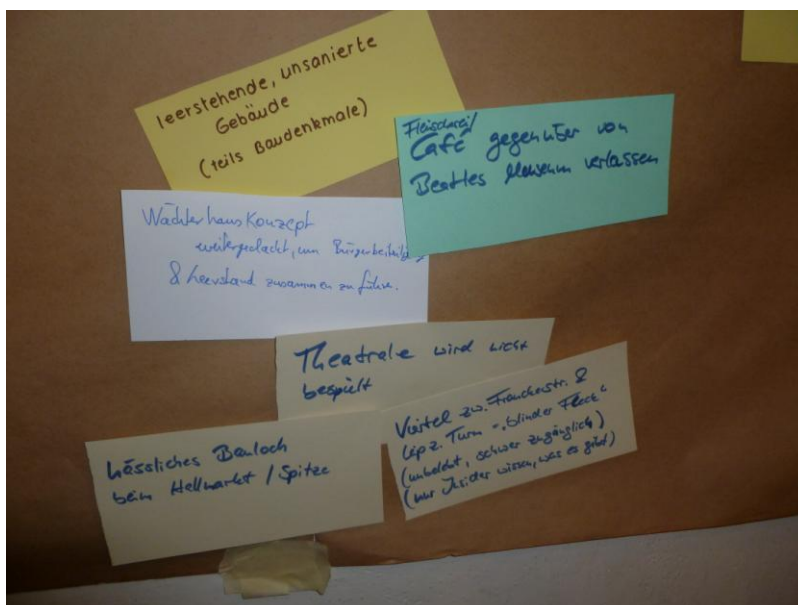 leerstehende, unsanierte
Gebäude
(teils Baudenkmale)
Fleischerei/
Café gegenüber von
Beatles Museum verlassen
Wächterhaus Konzept
weitergedacht, um Bürgerbeteilig
& Leerstand zusammen zu führen.
Theatrale wird nicht
bespielt
Viertel zw. Franckestr. &
Leipz. Turm - "blinder Fleck"
(unbelebt, schwer zugänglich)
(nur Insider wissen, was es gibt)
hässliches Bauloch
beim Hallmarkt / Spitze